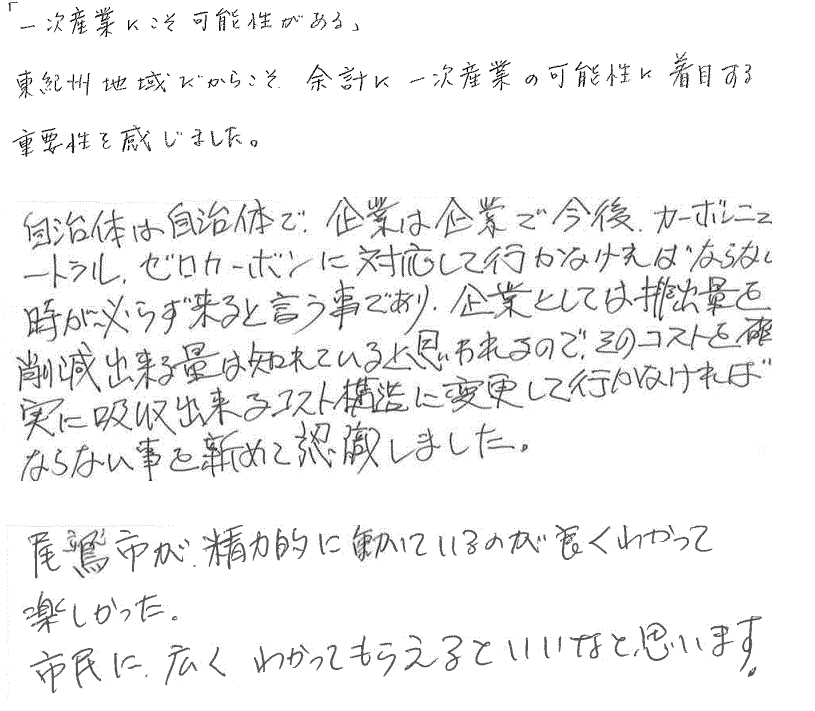 「一次産業にこそ可能性がある」
東紀州地域だからこそ 余計に 一次産業の可能性に着目する
重要性を感じました。
自治体は自治体で、企業は企業で今後、カーボンニュ
ートラル、ゼロカーボンに対応して行かなければならない
時が必らず来ると言う事であり、企業としては排出量を
削減出来る量は知れていると思われるので、そのコストを確
実に吸収出来るコスト構造に変更して行かなければ
ならない事を新めて認識しました。
尾鷲市が、精力的に動いているのが良くわかって
楽しかった。
市民に、広く わかってもらえるといいなと思います。